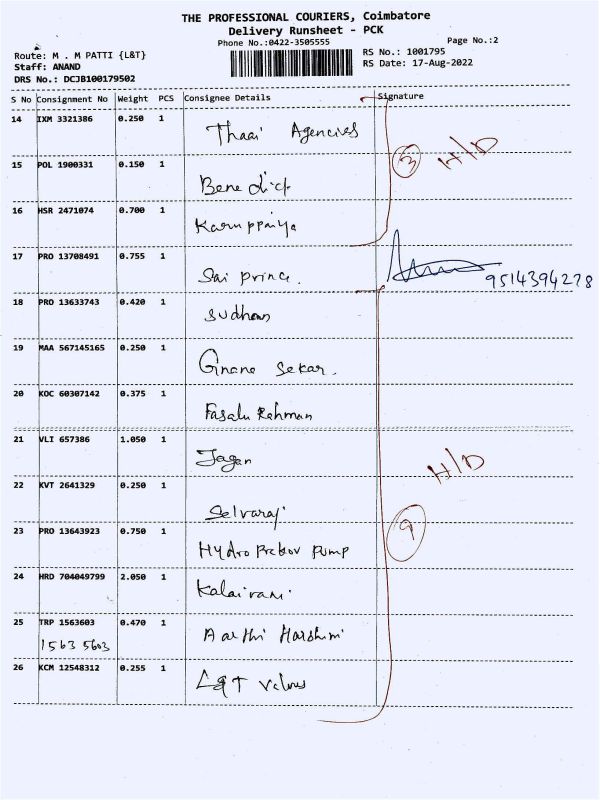 THE PROFESSIONAL COURIERS, Coimbatore
Delivery Runsheet - PCK
Phone No.:0422-3505555
Page No.:2
Route: M . M PATTI {L&T}
RS No.: 1001795
Staff: ANAND
RS Date: 17-Aug-2022
DRS No.: DCJB100179502
S No Consignment No Weight PCS Consignee Details Signature
14 IXM 3321386 0.250 1 Thaai Agencies
3 H/D
15 POL 1900331 0.150 1 Benedict
16 HSR 2471074 0.700 1 Karuppaiya
17 PRO 13708491 0.755 1 Sai prince. 9514394278
18 PRO 13633743 0.420 1 Sudhan
19 MAA 567145165 0.250 1 Gnana Sekar.
20 KOC 60307142 0.375 1 Fasalu Rehman
21 VLI 657386 1.050 1 Jagan
H/D
22 KVT 2641329 0.250 1 Selvaraj
9
23 PRO 13643923 0.750 1 Hydro Pump
24 HRD 704049799 2.050 1 Kalairani
25 TRP 1563603 0.470 1 Aarthi Harshini
1563 5603
26 KCM 12548312 0.255 1 L&T Valves